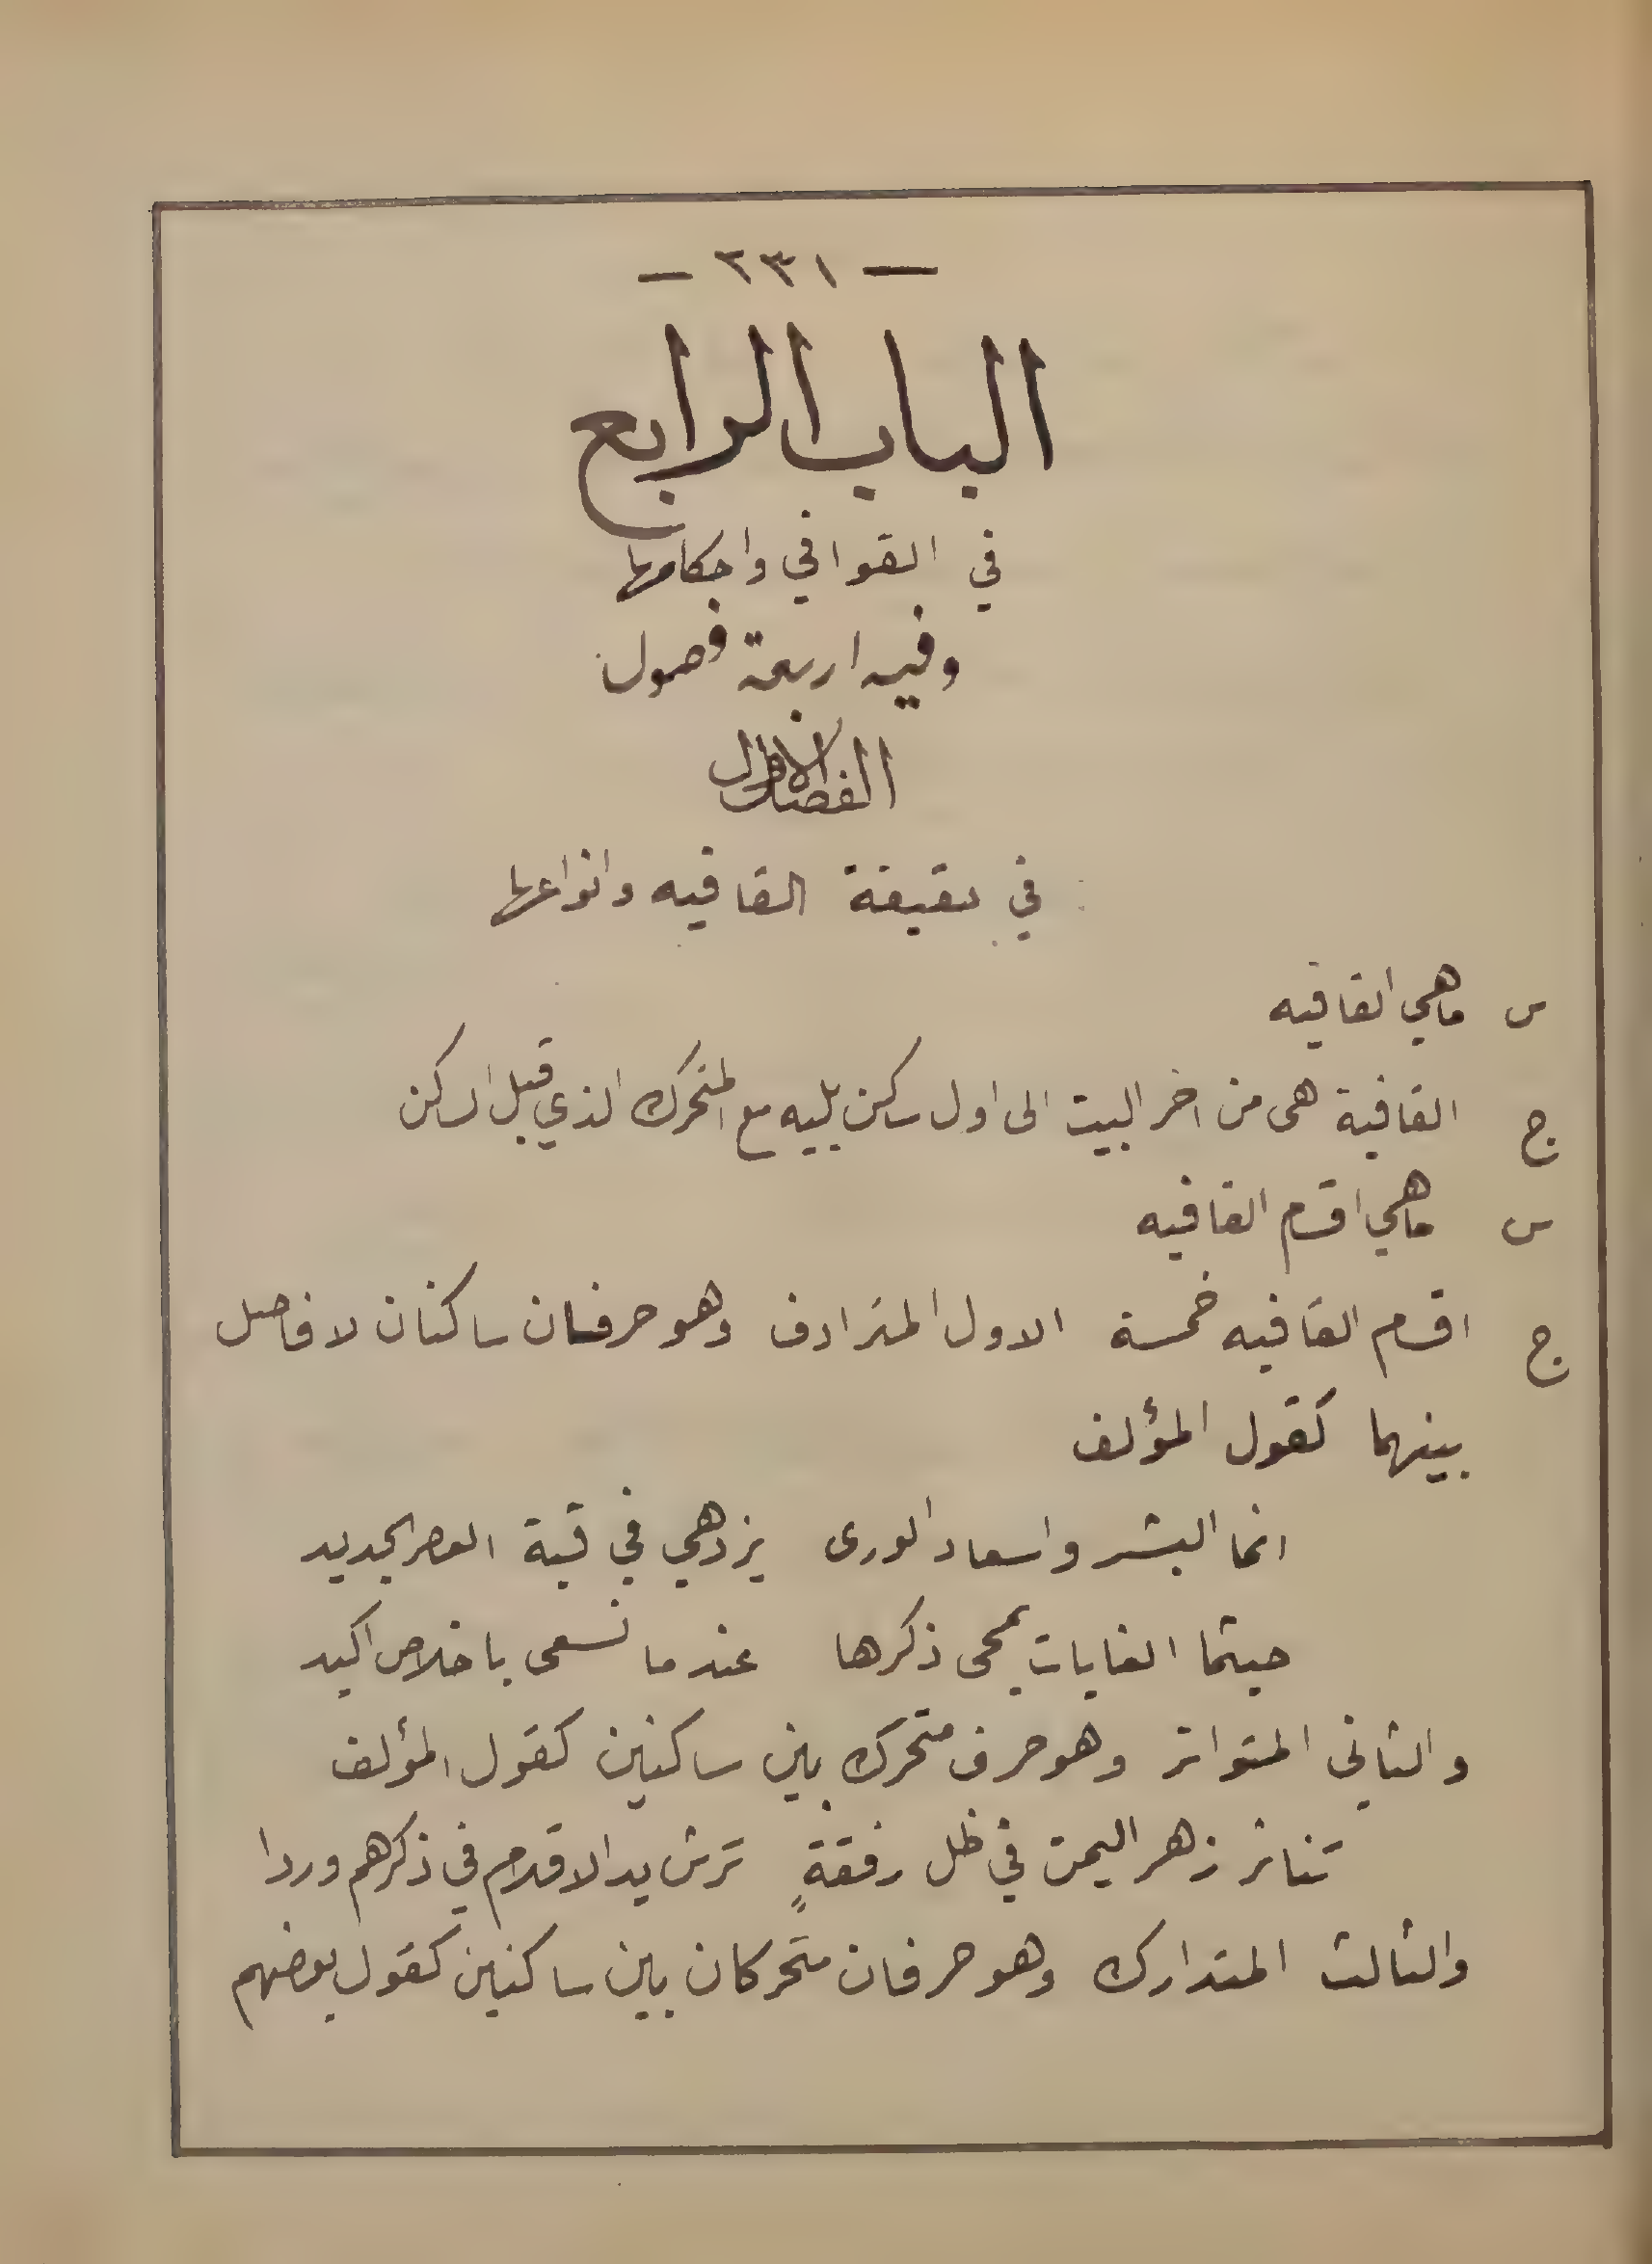 — ٢٣١ —
الباب الرابع
في القوافي واحكامها
وفيه اربعة فصول
الفصل الاول
في حقيقة القافيه وانواعها
س ماهي القافيه
ج القافية هى من اخر البيت الى اول ساكن يليه مع المتحرك الذي قبل الساكن
س ماهي اقسام القافيه
ج اقسام القافيه خمسة الاول المترادف وهو حرفان ساكنان لا فاصل
بينهما كقول المؤلف
انما البشر واسعاد الورى يزدهي في قبة العصر الجديد
حيثما الغايات يمحى ذكرها عندما نسعى باخلاص اكيد
والثاني المتواتر وهو حرف متحرك بين ساكنين كقول المؤلف
تناثر زهر اليمن في ظل رفقةٍ ترش يد الاقلام في ذكرهم وردا
والثالث المتدارك وهو حرفان متحركان بين ساكنين كقول بعضهم